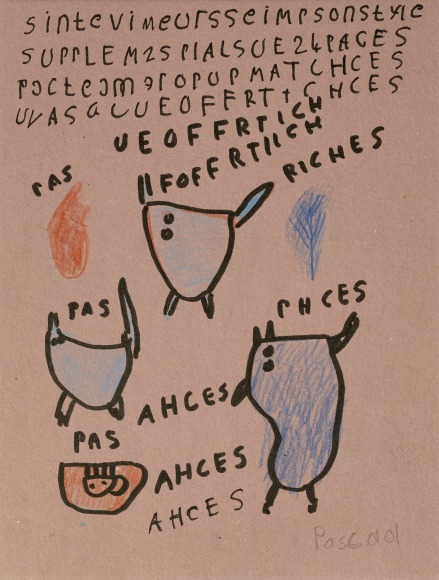 sintevimeursseimpsonstyle
SUPPLEM2SPIALSUE24PAGES
POCteOM9rOPUPMATCHCES
UVASGLUEOFFRTtCHCES
UEOFFRTICH
IIFOFFRTIICH
RICHES
PAS
PAS
PHCES
AHCES
PAS
AHCES
AHCES